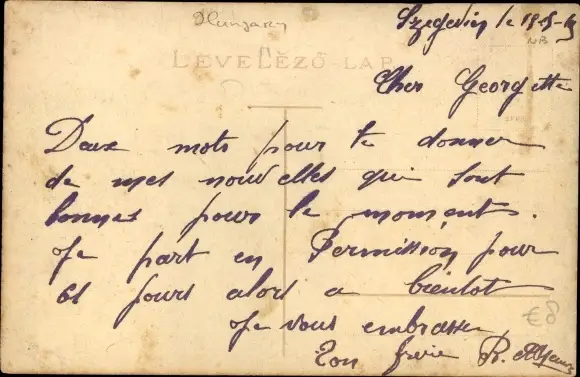 Hungary
Szegedin le 19-5-19
LEVELEZŐ-LAP
Cher Georgette
Deux mots pour te donner
de mes nouvelles qui sont
bonnes pours le moment.
Je part en Permission pour
61 jours alors a bientot
Je vous embrasse
Ton freie R.
€8